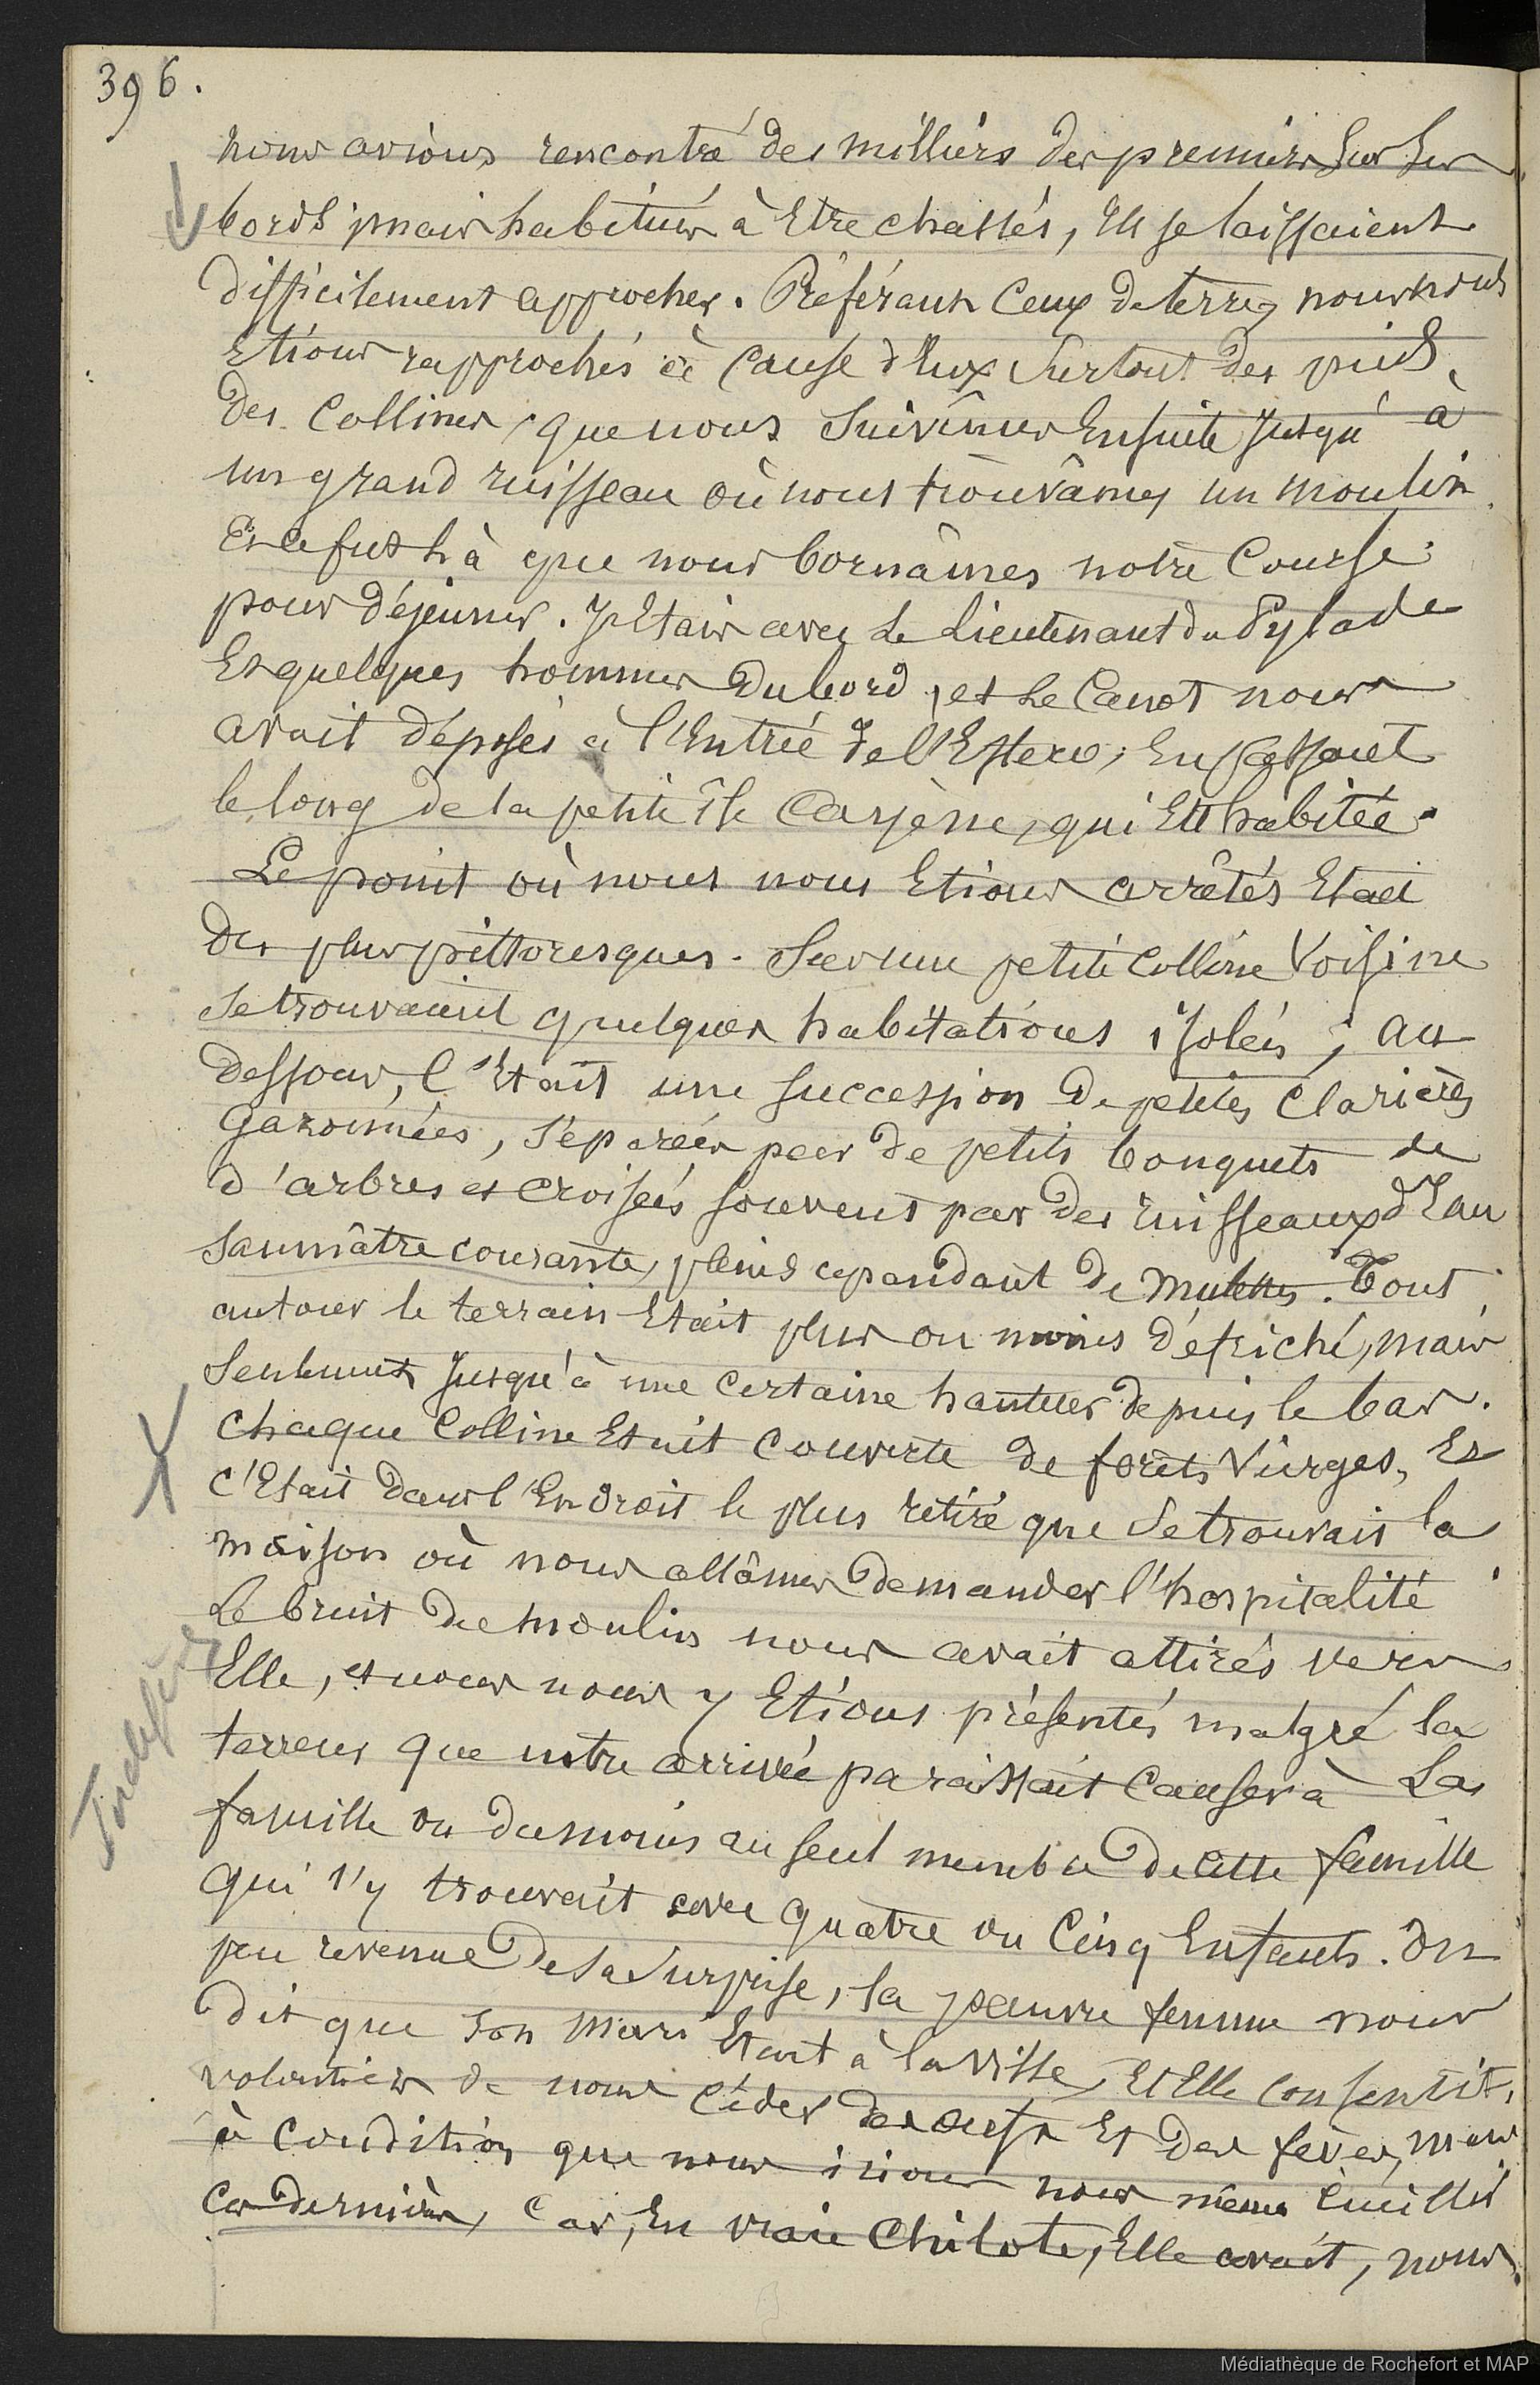 396.
nous avions rencontré des milliers des premiers sur ses
bords ; mais habitués à Etre chassés, Ils se laissaient
difficilement approcher. Préférant Ceux de terre, nous nous
Etions rapprochés à Cause d'Eux surtout des pieds
des Collines, que nous suivîmes Ensuite Jusqu'à
un grand ruisseau où nous trouvâmes un moulin.
Et ce fut là que nous bornâmes notre Course
pour déjeuner. J'Etais avec Le Lieutenant du Pylade
Et quelques hommes du bord, et Le Canot nous
avait déposés à l'Entrée de l'Estero, En passant
le long de la petite île , qui Est habitée.
Le point où nous nous Etions arrêtés Etait
des plus pittoresques. Sur une petite Colline Voisine
se trouvaient quelques habitations isolées ; au
dessous, C'Etait une succession de petites Clarières
Gazonnées, séparées par de petits bouquets de
d'arbres et Croisées souvent par des ruisseaux d'Eau
saumâtre courante, pleins cependant de mulettes. Tout
autour le terrain Etait plus ou moins défriché, mais
seulement Jusqu'à une Certaine hauteur depuis le bas.
Chaque Colline Etait Couverte de forêts Vierges, Et
C'Etait dans l'Endroit le plus retiré que se trouvait la
maison où nous allâmes demander l'hospitalité.
Le bruit du moulin nous avait attirés vers
Elle, et nous nous y Etions présentés malgré la
terreur que notre arrivée paraissait Causer à La
famille ou du moins au seul membre de Cette famille
qui s'y trouvait avec quatre ou Cinq Enfants. Un
peu revenue de sa surprise, la pauvre femme nous
dit que son mari Etait à la ville, Et Elle Consentit
volontiers de nous Céder des œufs Et des fèves, mais
à Condition que nous irions nous mêmes Cueillir
Ces dernières, Car, En vraie Chilote, Elle avait, nous